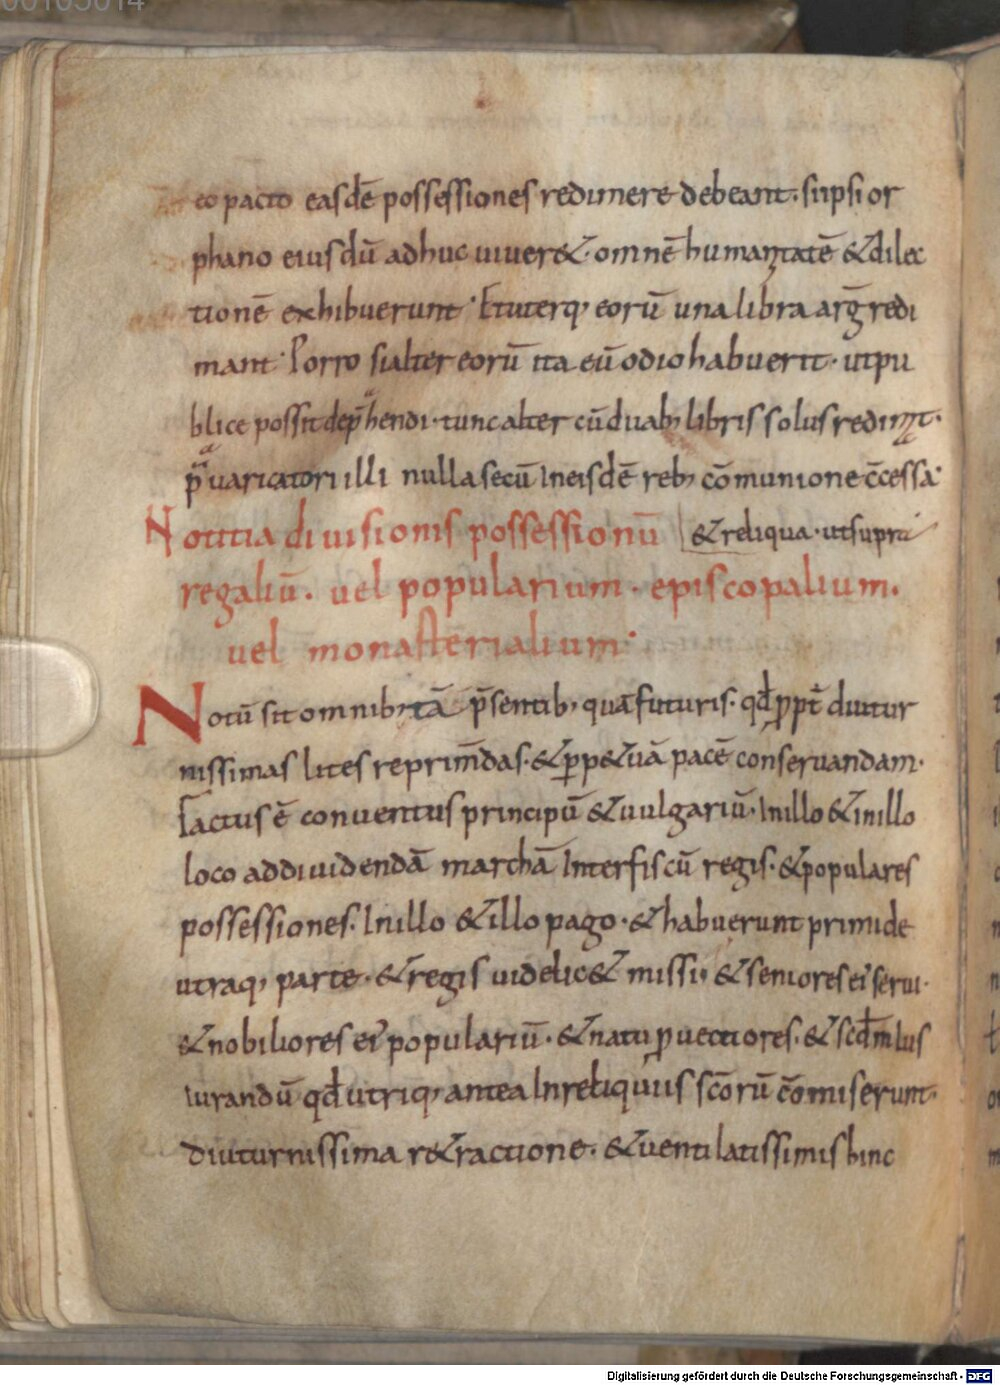 00105014
eo pacto easdē possessiones redimere debeant· si ipsi or
phano eiusdū adhuc uiuer&· omnē humanitatē &dilec
tionē exhibuerunt· Et uterq; eorū una libra arḡ redi
mant· Porro si alter eorū ita eū odio habuerit· ut pu
blice possit dep̄hendi· tunc alter cū duab; libris solus redimat·
p̄uaricatori illi nulla secū In eisdē reb; cōmunione c̄cessa·
Notitia diuisionis possessionū &reliqua· ut supra
regaliū· uel popularium· episcopalium·
uel monasterialium·
Notū sit omnib; tā p̄sentib; quā futuris· qđ ppt̄ diutur
nissimas lites reprim̄das· &perp&uā pacē conseruandam·
Factus ē conuentus principū &uulgariū· In illo &in illo
loco ad diuidendā marchā Inter fiscū regis· &populares
possessiones· In illo &illo pago· &habuerunt primi de
utraq; parte· &regis uidelic& missi· &seniores ei' serui·
&nobiliores ei' populariū· &natu puectiores· &scd̄m Ius
Iurandū qđ utriq; antea In reliquiis sc̄orū c̄omiserunt·
diuturnissima r&ractione· &uentilatissimis hinc
Digitalisierung gefördert durch die Deutsche Forschungsgemeinschaft - DFG